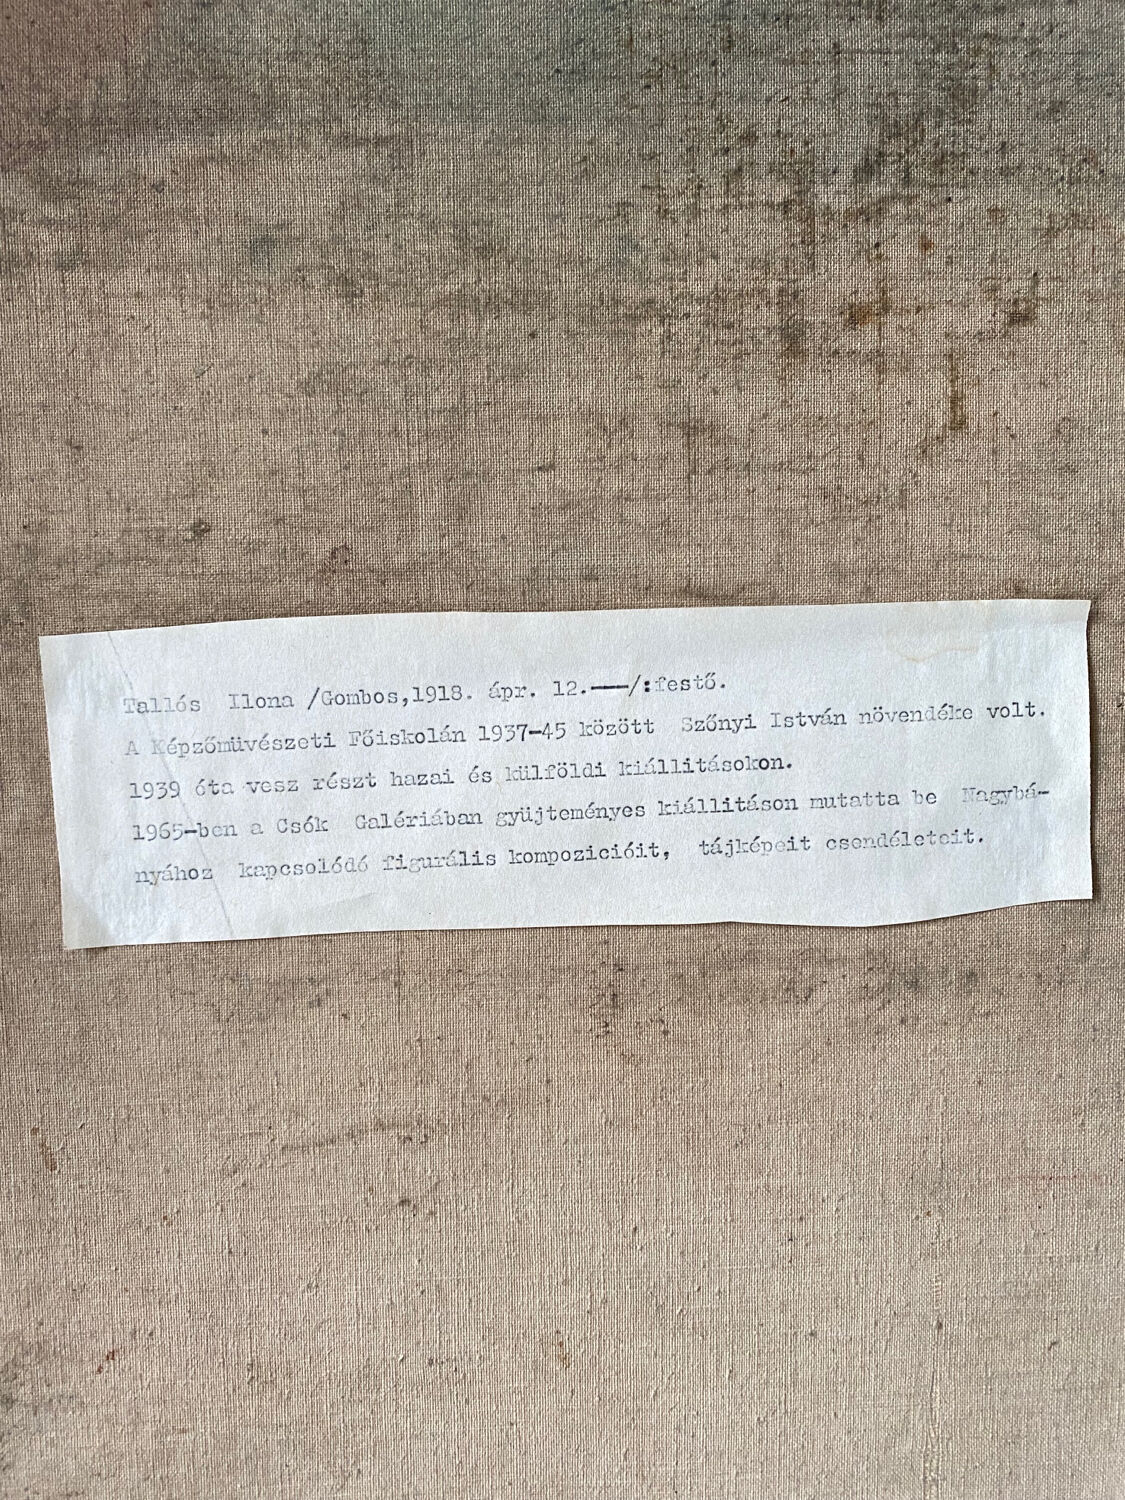 Tallós Ilona /Gombos,1918. ápr. 12.—-/:festő.
A Képzőmüvészeti Főiskolán 1937-45 között Szőnyi István növendéke volt.
1939 óta vesz részt hazai és külföldi kiállitásokon.
1965-ben a Csók Galériában gyüjteményes kiállitáson mutatta be Nagybá-
nyához kapcsolódó figurális kompozicióit, tájképeit csendéleteit.